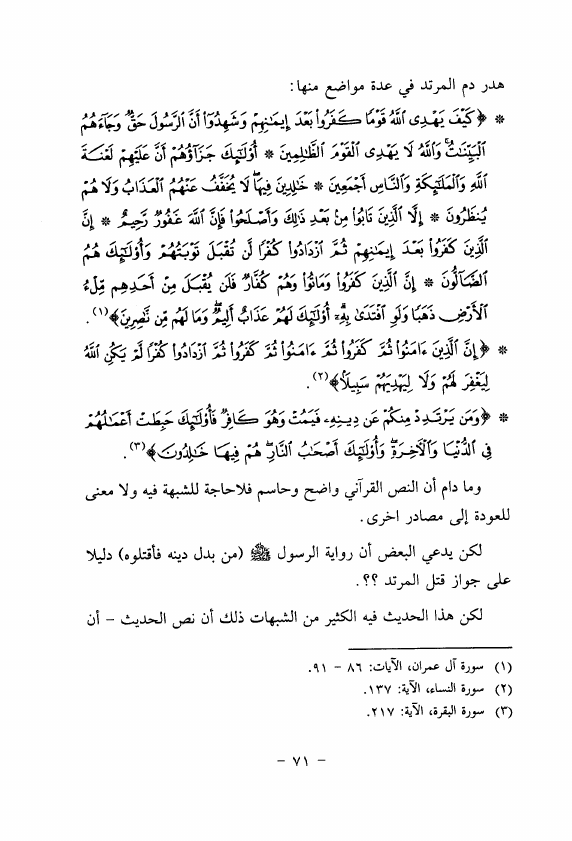 هدر دم المرتد في عدة مواضع منها:
* ﴿كَيْفَ يَهْدِى ٱللَّهُ قَوْمًا كَفَرُوا۟ بَعْدَ إِيمَٰنِهِمْ وَشَهِدُوٓا۟ أَنَّ ٱلرَّسُولَ حَقٌّ وَجَآءَهُمُ
ٱلْبَيِّنَٰتُ ۚ وَٱللَّهُ لَا يَهْدِى ٱلْقَوْمَ ٱلظَّٰلِمِينَ * أُو۟لَٰٓئِكَ جَزَآؤُهُمْ أَنَّ عَلَيْهِمْ لَعْنَةَ
ٱللَّهِ وَٱلْمَلَٰٓئِكَةِ وَٱلنَّاسِ أَجْمَعِينَ * خَٰلِدِينَ فِيهَا ۖ لَا يُخَفَّفُ عَنْهُمُ ٱلْعَذَابُ وَلَا هُمْ
يُنظَرُونَ * إِلَّا ٱلَّذِينَ تَابُوا۟ مِنۢ بَعْدِ ذَٰلِكَ وَأَصْلَحُوا۟ فَإِنَّ ٱللَّهَ غَفُورٌ رَّحِيمٌ * إِنَّ
ٱلَّذِينَ كَفَرُوا۟ بَعْدَ إِيمَٰنِهِمْ ثُمَّ ٱزْدَادُوا۟ كُفْرًا لَّن تُقْبَلَ تَوْبَتُهُمْ وَأُو۟لَٰٓئِكَ هُمُ
ٱلضَّآلُّونَ * إِنَّ ٱلَّذِينَ كَفَرُوا۟ وَمَاتُوا۟ وَهُمْ كُفَّارٌ فَلَن يُقْبَلَ مِنْ أَحَدِهِم مِّلْءُ
ٱلْأَرْضِ ذَهَبًا وَلَوِ ٱفْتَدَىٰ بِهِۦٓ ۗ أُو۟لَٰٓئِكَ لَهُمْ عَذَابٌ أَلِيمٌ وَمَا لَهُم مِّن نَّٰصِرِينَ﴾(١).
* ﴿إِنَّ ٱلَّذِينَ ءَامَنُوا۟ ثُمَّ كَفَرُوا۟ ثُمَّ ءَامَنُوا۟ ثُمَّ كَفَرُوا۟ ثُمَّ ٱزْدَادُوا۟ كُفْرًا لَّمْ يَكُنِ ٱللَّهُ
لِيَغْفِرَ لَهُمْ وَلَا لِيَهْدِيَهُمْ سَبِيلًۢا﴾(٢).
* ﴿وَمَن يَرْتَدِدْ مِنكُمْ عَن دِينِهِۦ فَيَمُتْ وَهُوَ كَافِرٌ فَأُو۟لَٰٓئِكَ حَبِطَتْ أَعْمَٰلُهُمْ
فِى ٱلدُّنْيَا وَٱلْءَاخِرَةِ ۖ وَأُو۟لَٰٓئِكَ أَصْحَٰبُ ٱلنَّارِ ۖ هُمْ فِيهَا خَٰلِدُونَ﴾(٣).
وما دام أن النص القرآني واضح وحاسم فلاحاجة للشبهة فيه ولا معنى
للعودة إلى مصادر اخرى.
لكن يدعي البعض أن رواية الرسول ﷺ (من بدل دينه فأقتلوه) دليلا
على جواز قتل المرتد ؟؟.
لكن هذا الحديث فيه الكثير من الشبهات ذلك أن نص الحديث - أن
(١) سورة آل عمران، الآيات: ٨٦ - ٩١.
(٢) سورة النساء، الآية: ١٣٧.
(٣) سورة البقرة، الآية: ٢١٧.
- ٧١ -